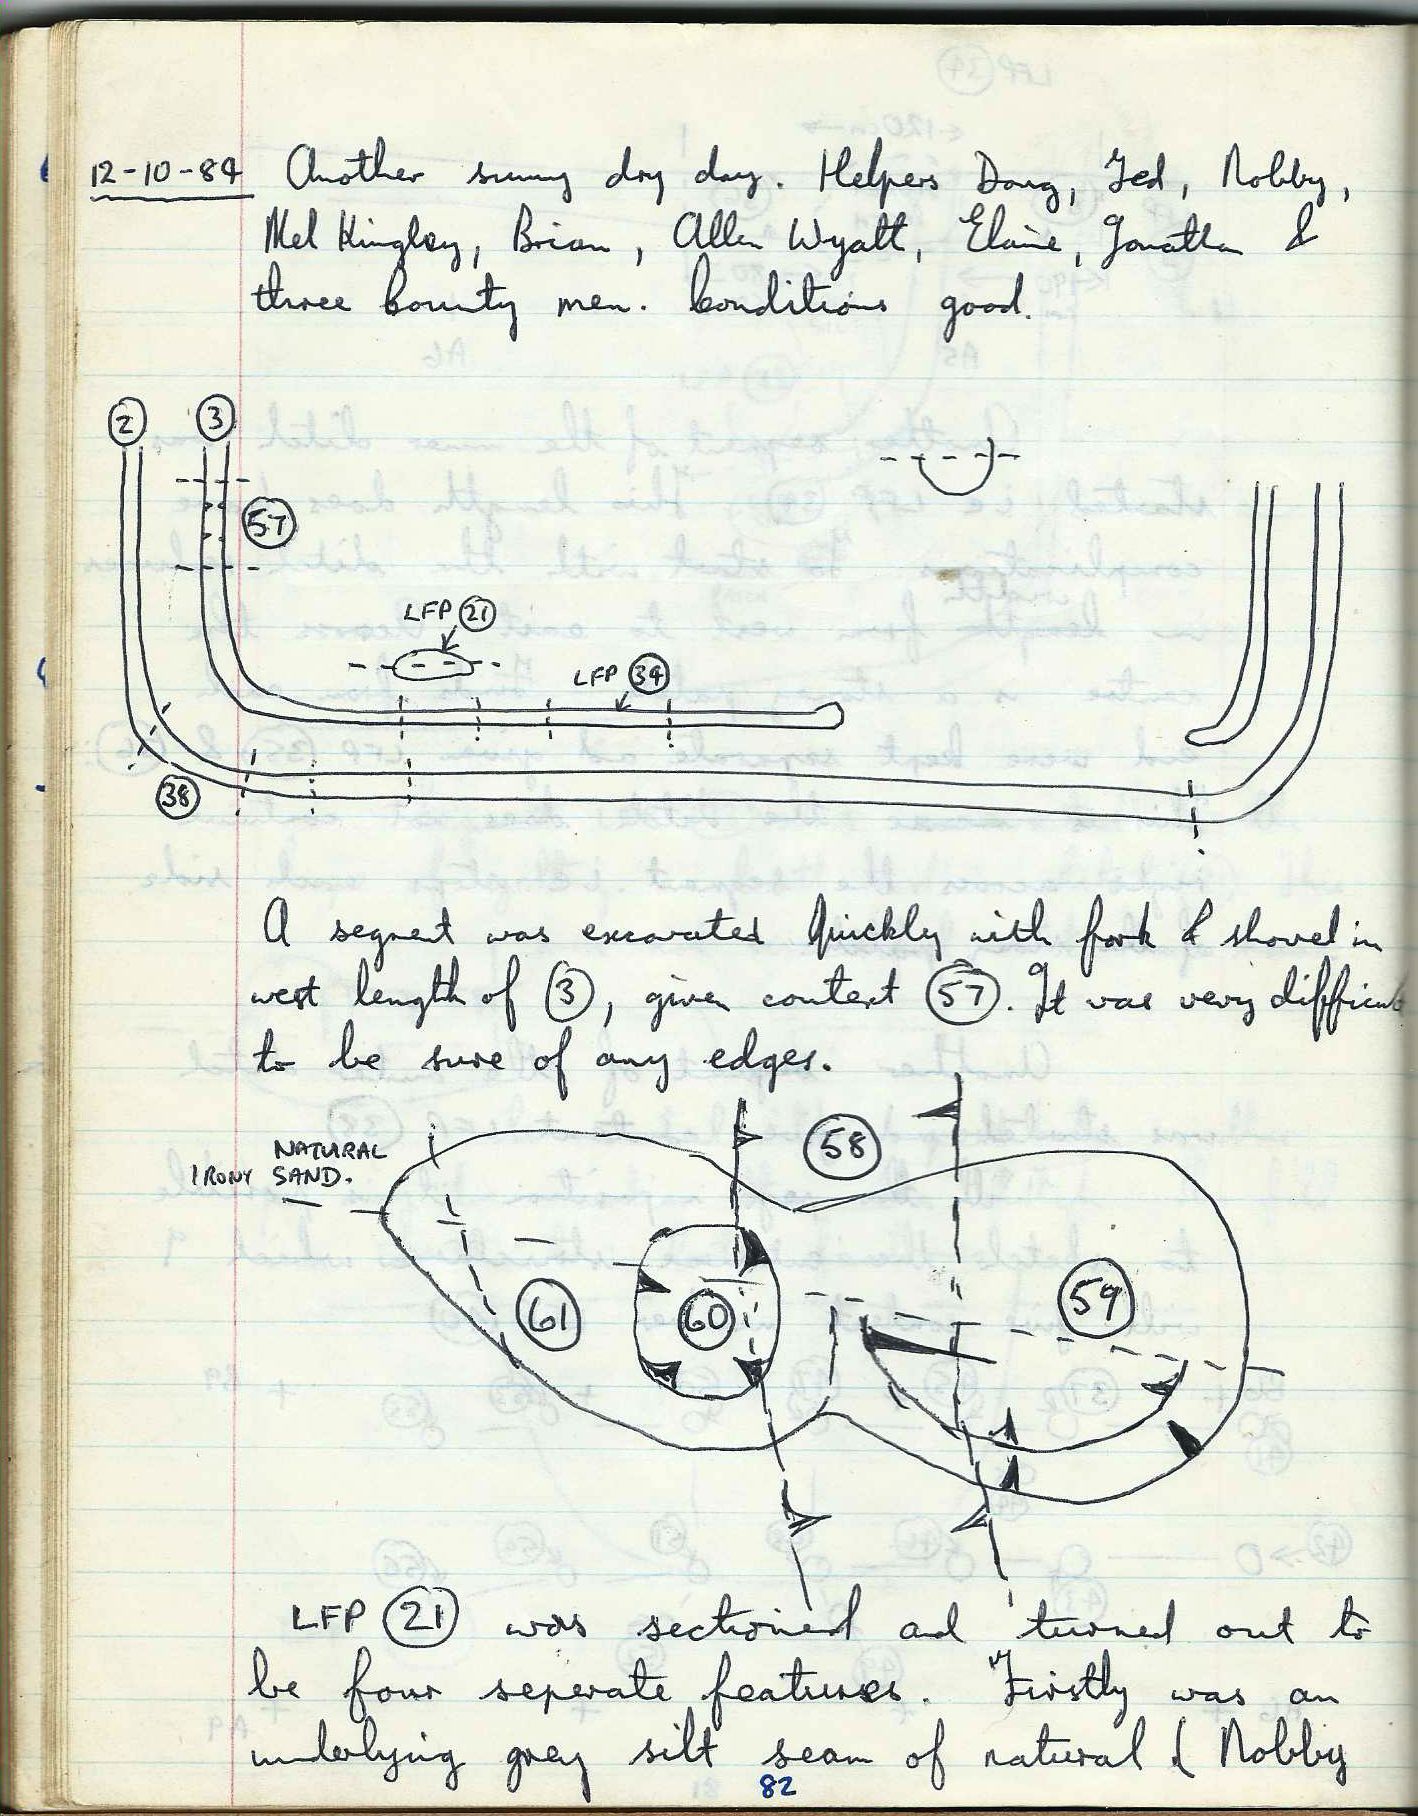 12-10-84 Another sunny dry day. Helpers Doug, Ted, Nobby,
Mel Kingley, Brian, Allen Wyatt, Elaine, Jonathan &
three County men. Conditions good.
2 3
57
LFP 21
LFP 34
38
A segment was excavated quickly with fork & shovel in
west length of 3, given context 57. It was very difficult
to be sure of any edges.
58
NATURAL
IRONY SAND.
59
61 60
LFP 21 was sectioned and turned out to
be four seperate features. Firstly was an
underlying grey silt seam of natural ( Nobby
82